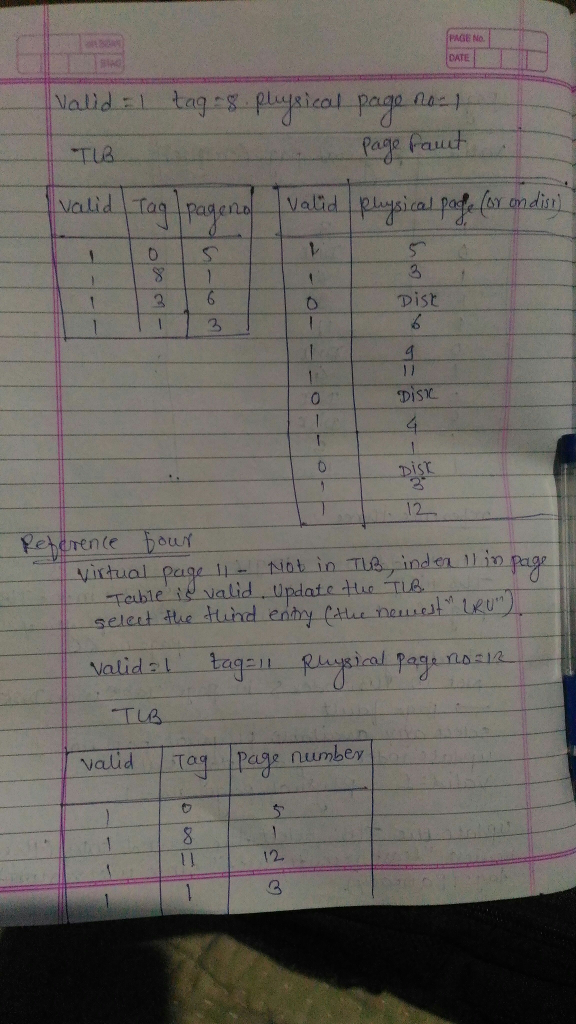 PAGE No.
DATE
Valid = 1 tag = 8 physical page no = 1
TLB page fault
Valid Tag pageno
1 0 5
1 8 1
1 3 6
1 1 3
Valid physical page (or on disk)
1 5
1 3
0 Disk
1 6
1 9
1 11
0 Disk
1 4
1 1
0 Disk
1 3
1 12
Reference four
virtual page 11 - Not in TLB, index 11 in page
Table is valid. Update the TLB
select the third entry (the newest "LRU").
Valid = 1 tag = 11 physical page no = 12
TLB
Valid Tag page number
1 0 5
1 8 1
1 11 12
1 1 3